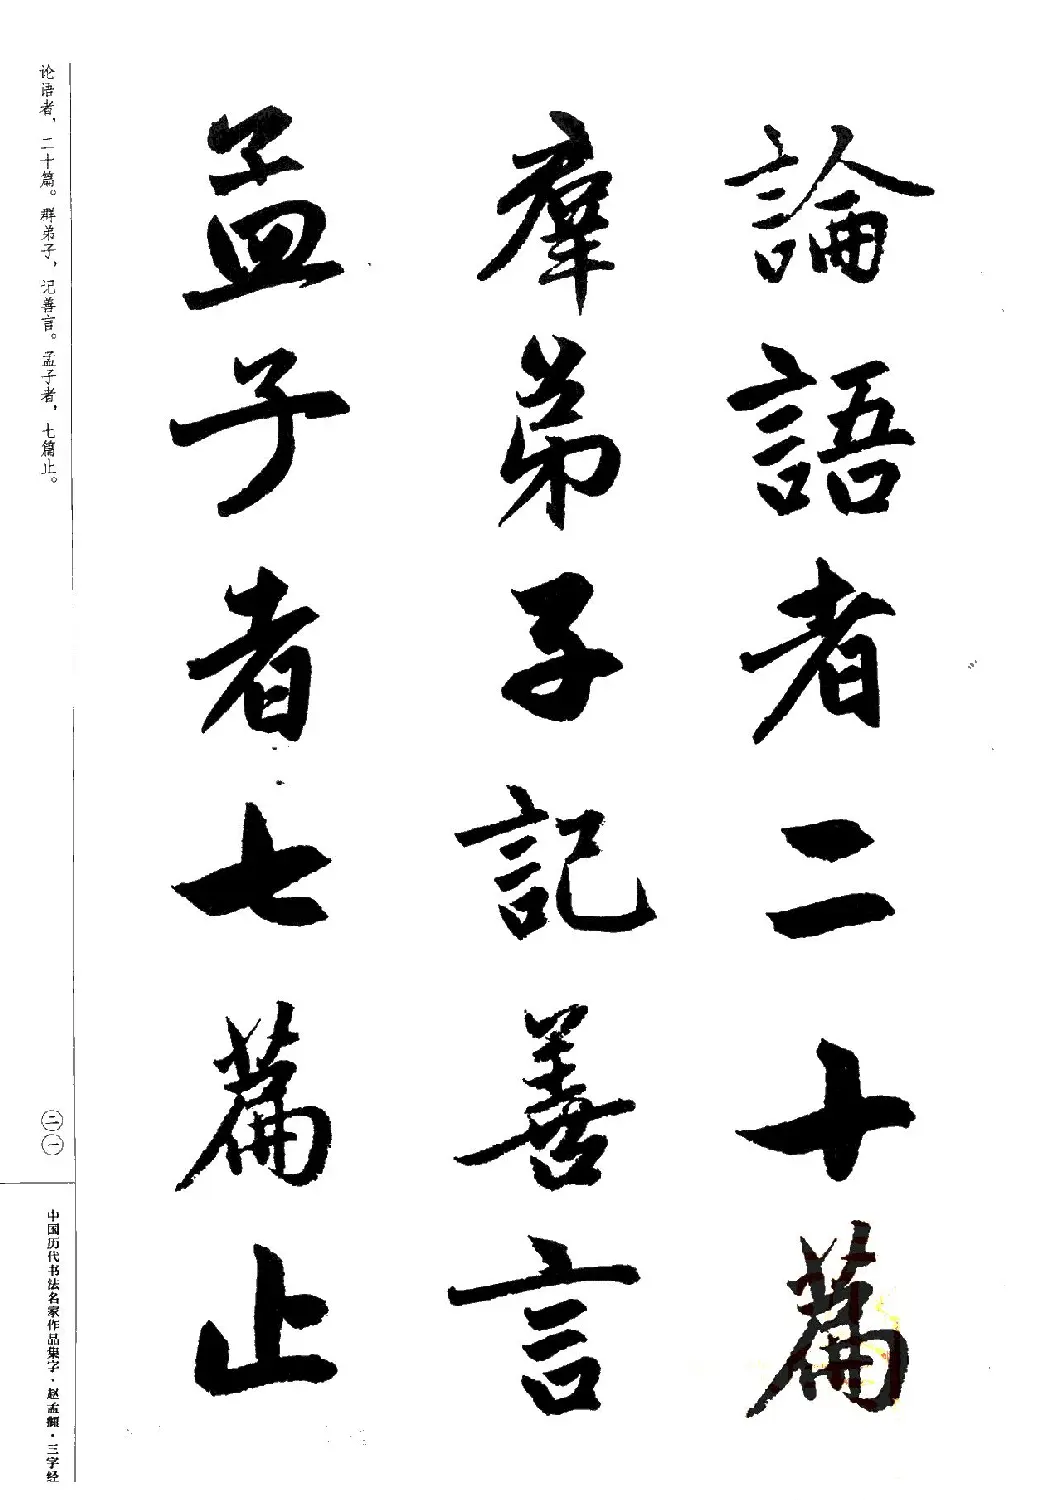 論語者二十篇
羣弟子記善言
孟子者七篇止
论语者，二十篇。群弟子，记善言。孟子者，七篇止。
二一
中国历代书法名家作品集字·赵孟頫·三字经